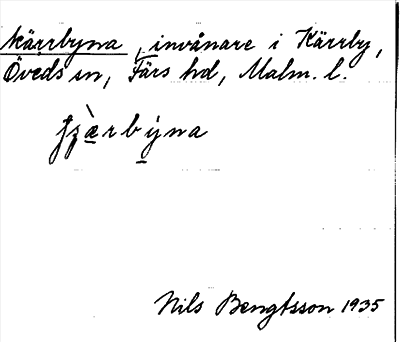 Kärrbyna, invånare i Kärrby,
Öveds sn, Färs hd, Malm. l.
Nils Bengtsson 1935